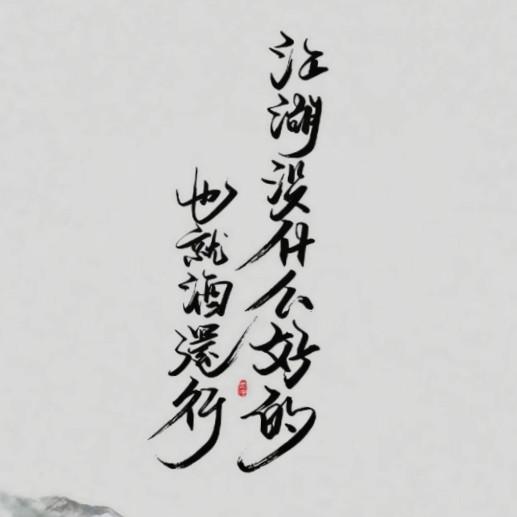 江湖没什么好的
也就酒還行